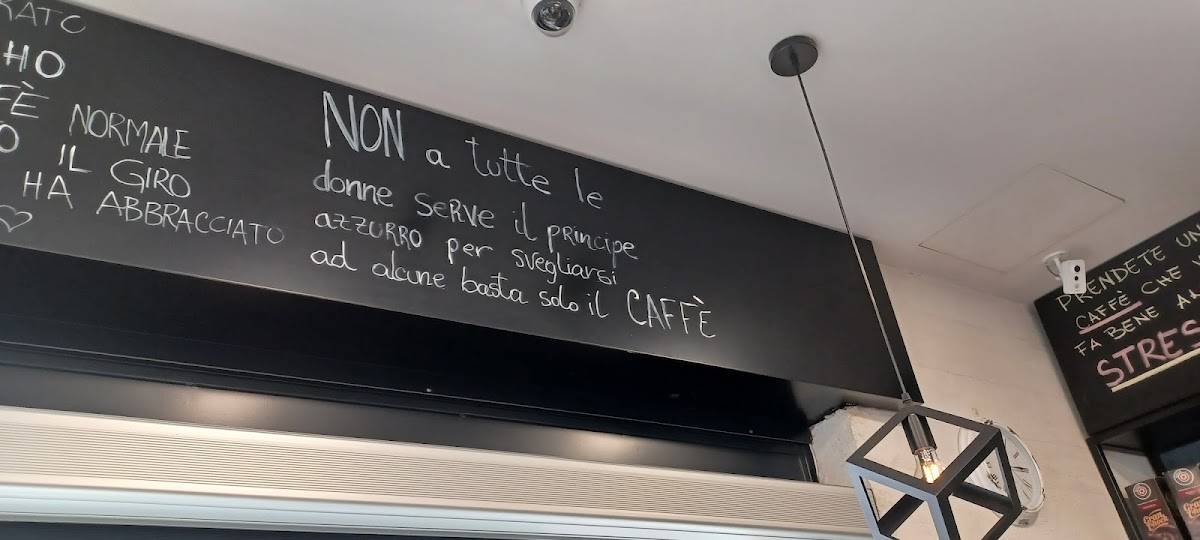 HO
NORMALE
IL GIRO
HA ABBRACCIATO
NON a tutte le
donne SERVE il PRINCIPE
AZZURRO per svegliarsi
ad alcune basta solo il CAFFÈ
PRENDETE UN
CAFFÈ CHE
FA BENE
STRES